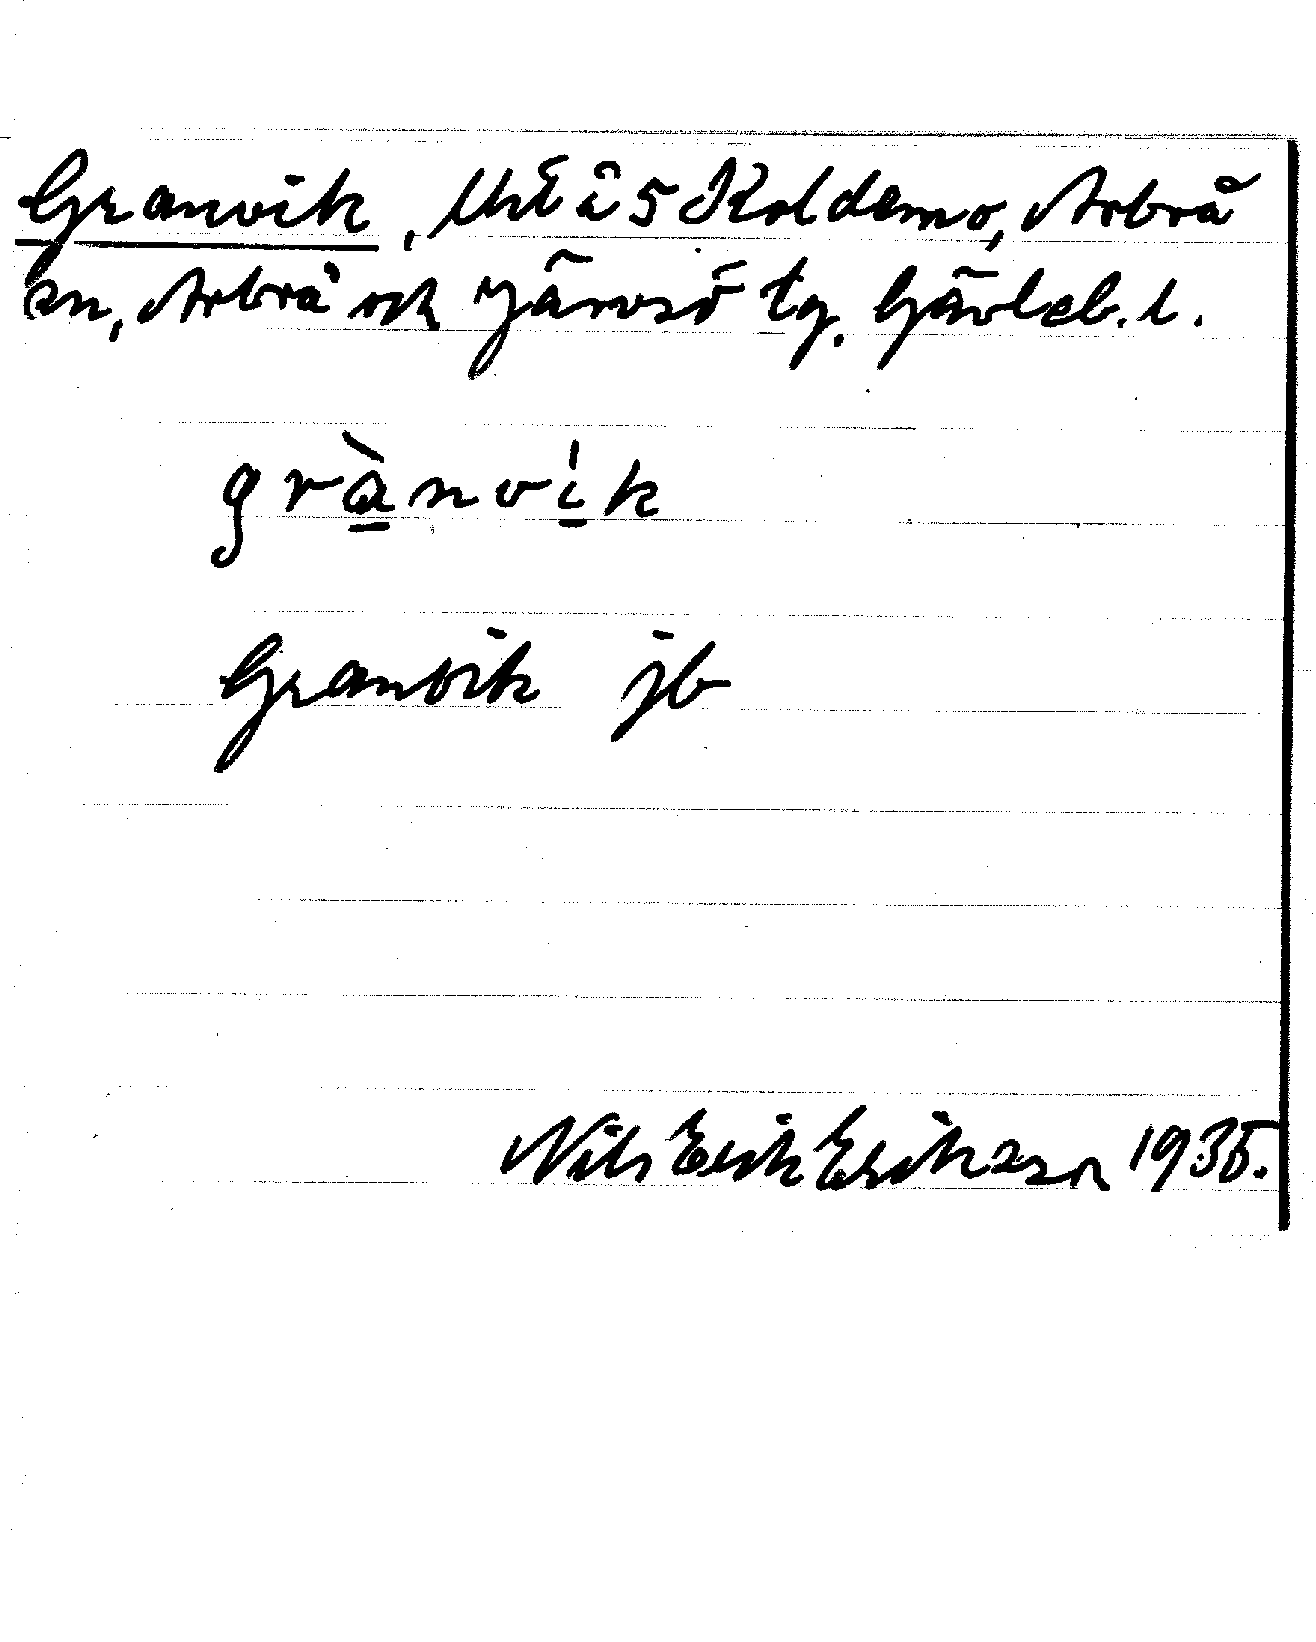 Granvik, Uhl i 5 Koldemo, Arbrå
sn, Arbrå och Järvsö tg. Gävleb. l.
grànvi̍k
Granvik jb
Nils Erik Eriksson 1935.